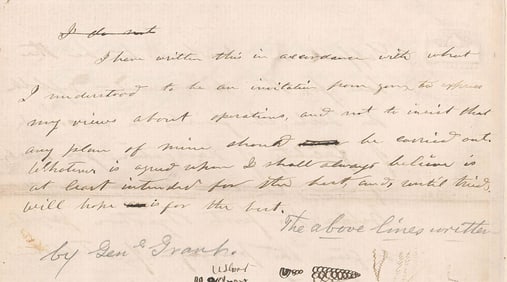 I do not
I have written this in accordance with what
I understood to be an invitation from you, to express
my views about operations, and not to insist that
any plan of mine should be carried out.
Whatever is agreed upon I shall always believe is
at least intended for the best, and, until tried,
will hope is for the best.
The above lines written
by Gen'l Grant.